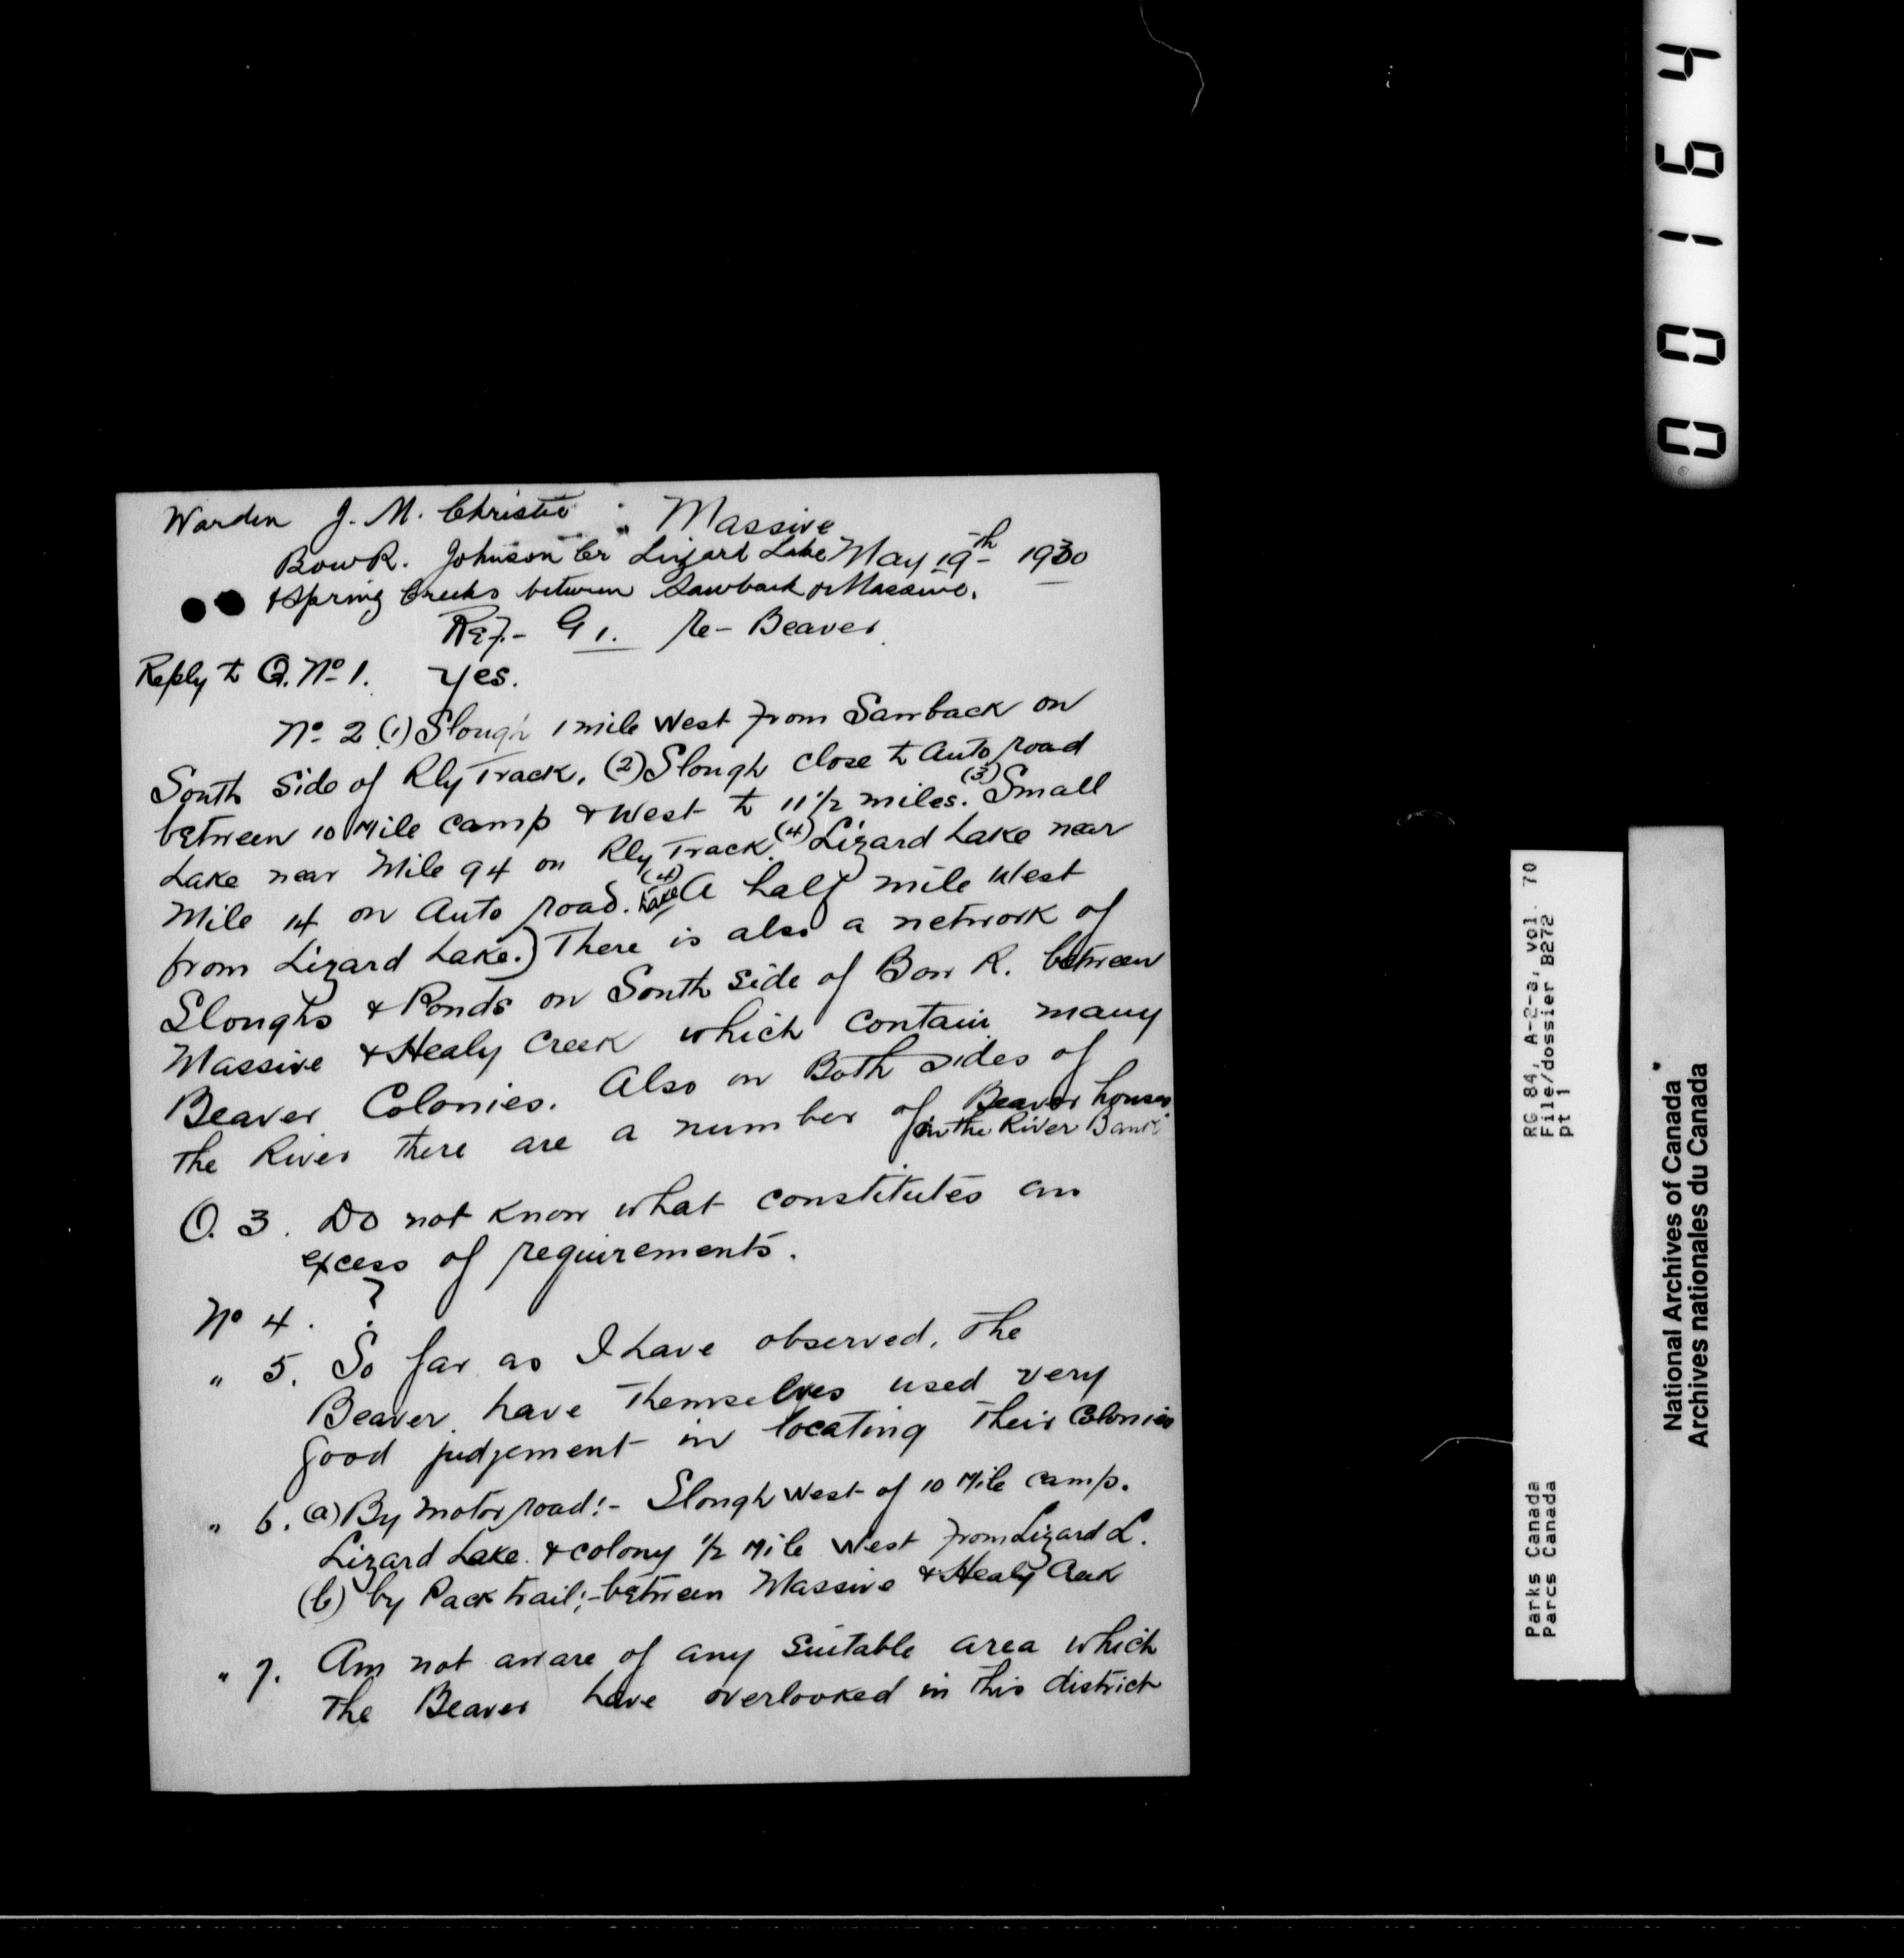 Warden J. M. Christie : Massive
Bow R. Johnson Cr Lizard Lake May 19th 1930
& Spring Creeks between Sawback & Massive.
Ref- G 1. re- Beaver.
Reply to Q. No 1. Yes.
No 2 (1) Slough 1 mile West from Sawback on
South Side of Rly Track. (2) Slough close to Auto road
between 10 Mile camp & West to 11 1/2 miles. (3) Small
Lake near Mile 94 on Rly Track. (4) Lizard Lake near
Mile 14 on Auto road. (4) Lake A half mile West
from Lizard Lake.) There is also a network of
Sloughs & Ponds on South Side of Bow R. between
Massive & Healy Creek which contain many
Beaver Colonies. Also on Both sides of
the River there are a number of Beaver houses
in the River Bank
Q. 3. Do not know what constitutes an
excess of requirements.
No 4. ?
" 5. So far as I have observed, the
Beaver have themselves used very
good judgement in locating their Colonies
" 6. (a) By motor road:- Slough West of 10 Mile camp.
Lizard Lake & colony 1/2 Mile West from Lizard L.
(b) by Pack trail:- between Massive & Healy Creek
" 7. Am not aware of any suitable area which
the Beaver have overlooked in this district
00164
RG 84, A-2-a, vol. 70
File/dossier B272
pt 1
Parks Canada
Parcs Canada
National Archives of Canada
Archives nationales du Canada